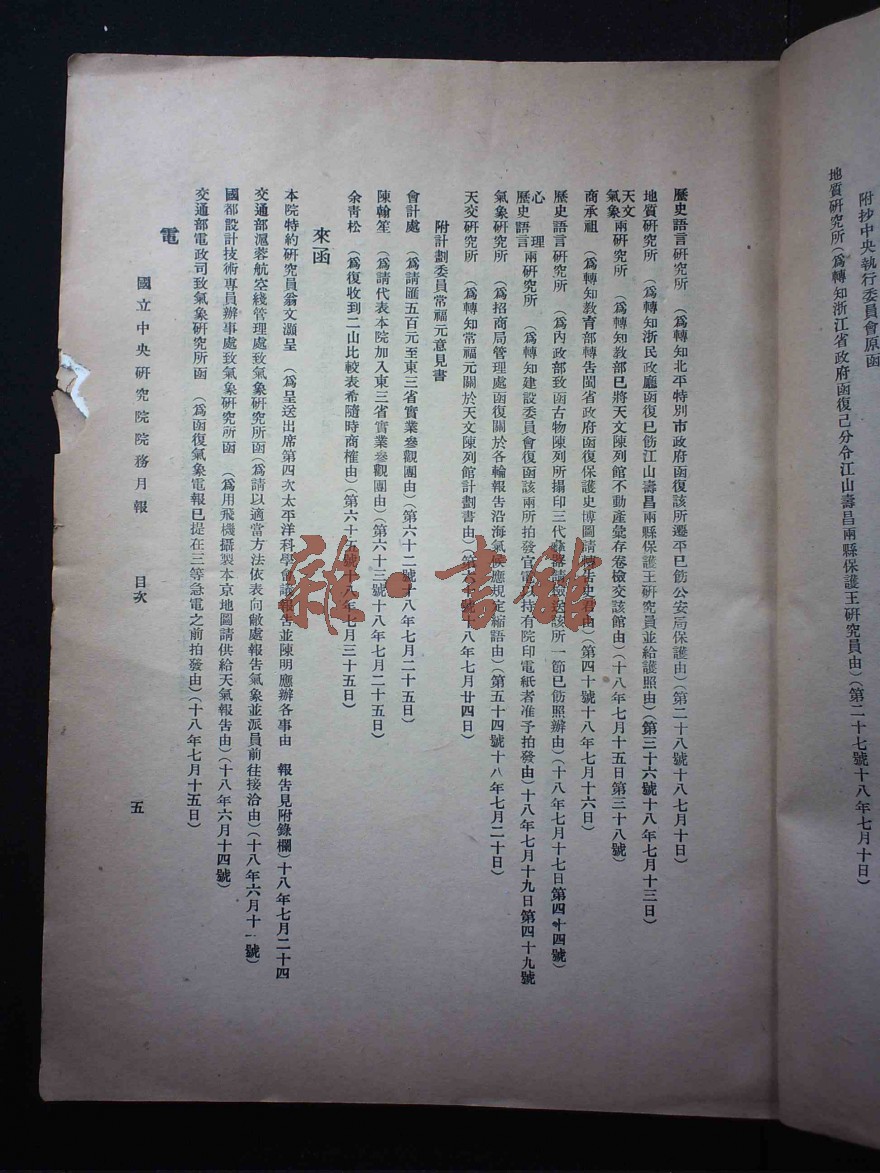 附抄中央執行委員會原函
地質研究所（爲轉知浙江省政府函復已分令江山壽昌兩縣保護王研究員由）（第二十七號十八年七月十日）
歷史語言研究所　（爲轉知北平特別市政府函復該所遷平已飭公安局保護由）（第二十八號十八七月十日）
地質研究所　（爲轉知浙民政廳函復已飭江山壽昌兩縣保護王研究員並給護照由）（第三十六號十八年七月十三日）
天文氣象兩研究所　（爲轉知教部已將天文陳列館不動產彙存卷檢交該館由）（十八年七月十五日第三十八號）
商承祖　（爲轉知教育部轉告閩省政府函復保護史博圖請轉告史君由）（第四十號十八年七月十六日）
歷史語言研究所　（爲內政部致函古物陳列所搨印三代彝器請檢送該所一節已飭照辦由）（十八年七月十七日第四十四號）
心理歷史語言兩研究所　（爲轉知建設委員會復函該兩所拍發官電以持有院印電紙者准予拍發由）十八年七月十九日第四十九號
氣象研究所　（爲招商局管理處函復關於各輪報告沿海氣候應規定縮語由）（第五十四號十八年七月二十日）
天文研究所　（爲轉知常福元關於天文陳列館計劃書由）（第六十號十八年七月廿四日）
附計劃委員常福元意見書
會計處　（爲請匯五百元至東三省實業參觀團由）（第六十二號十八年七月二十五日）
陳翰笙　（爲請代表本院加入東三省實業參觀團由）（第六十三號十八年七月二十五日）
余青松　（爲復收到二山比較表希隨時商榷由）（第六十五號十八年七月三十五日）
來函
本院特約研究員翁文灝呈　（爲呈送出席第四次太平洋科學會議報告並陳明應辦各事由　報告見附錄欄）十八年七月二十四
交通部滬蓉航空綫管理處致氣象研究所函（爲請以適當方法依表向敝處報告氣象並派員前往接洽由）（十八年六月十一號）
國都設計技術專員辦事處致氣象研究所函　（爲用飛機攝製本京地圖請供給天氣報告由）（十八年六月十四號）
交通部電政司致氣象研究所函　（爲函復氣象電報已提在三等急電之前拍發由）（十八年七月十五日）
電
國立中央研究院院務月報　目次　五
雜·書館